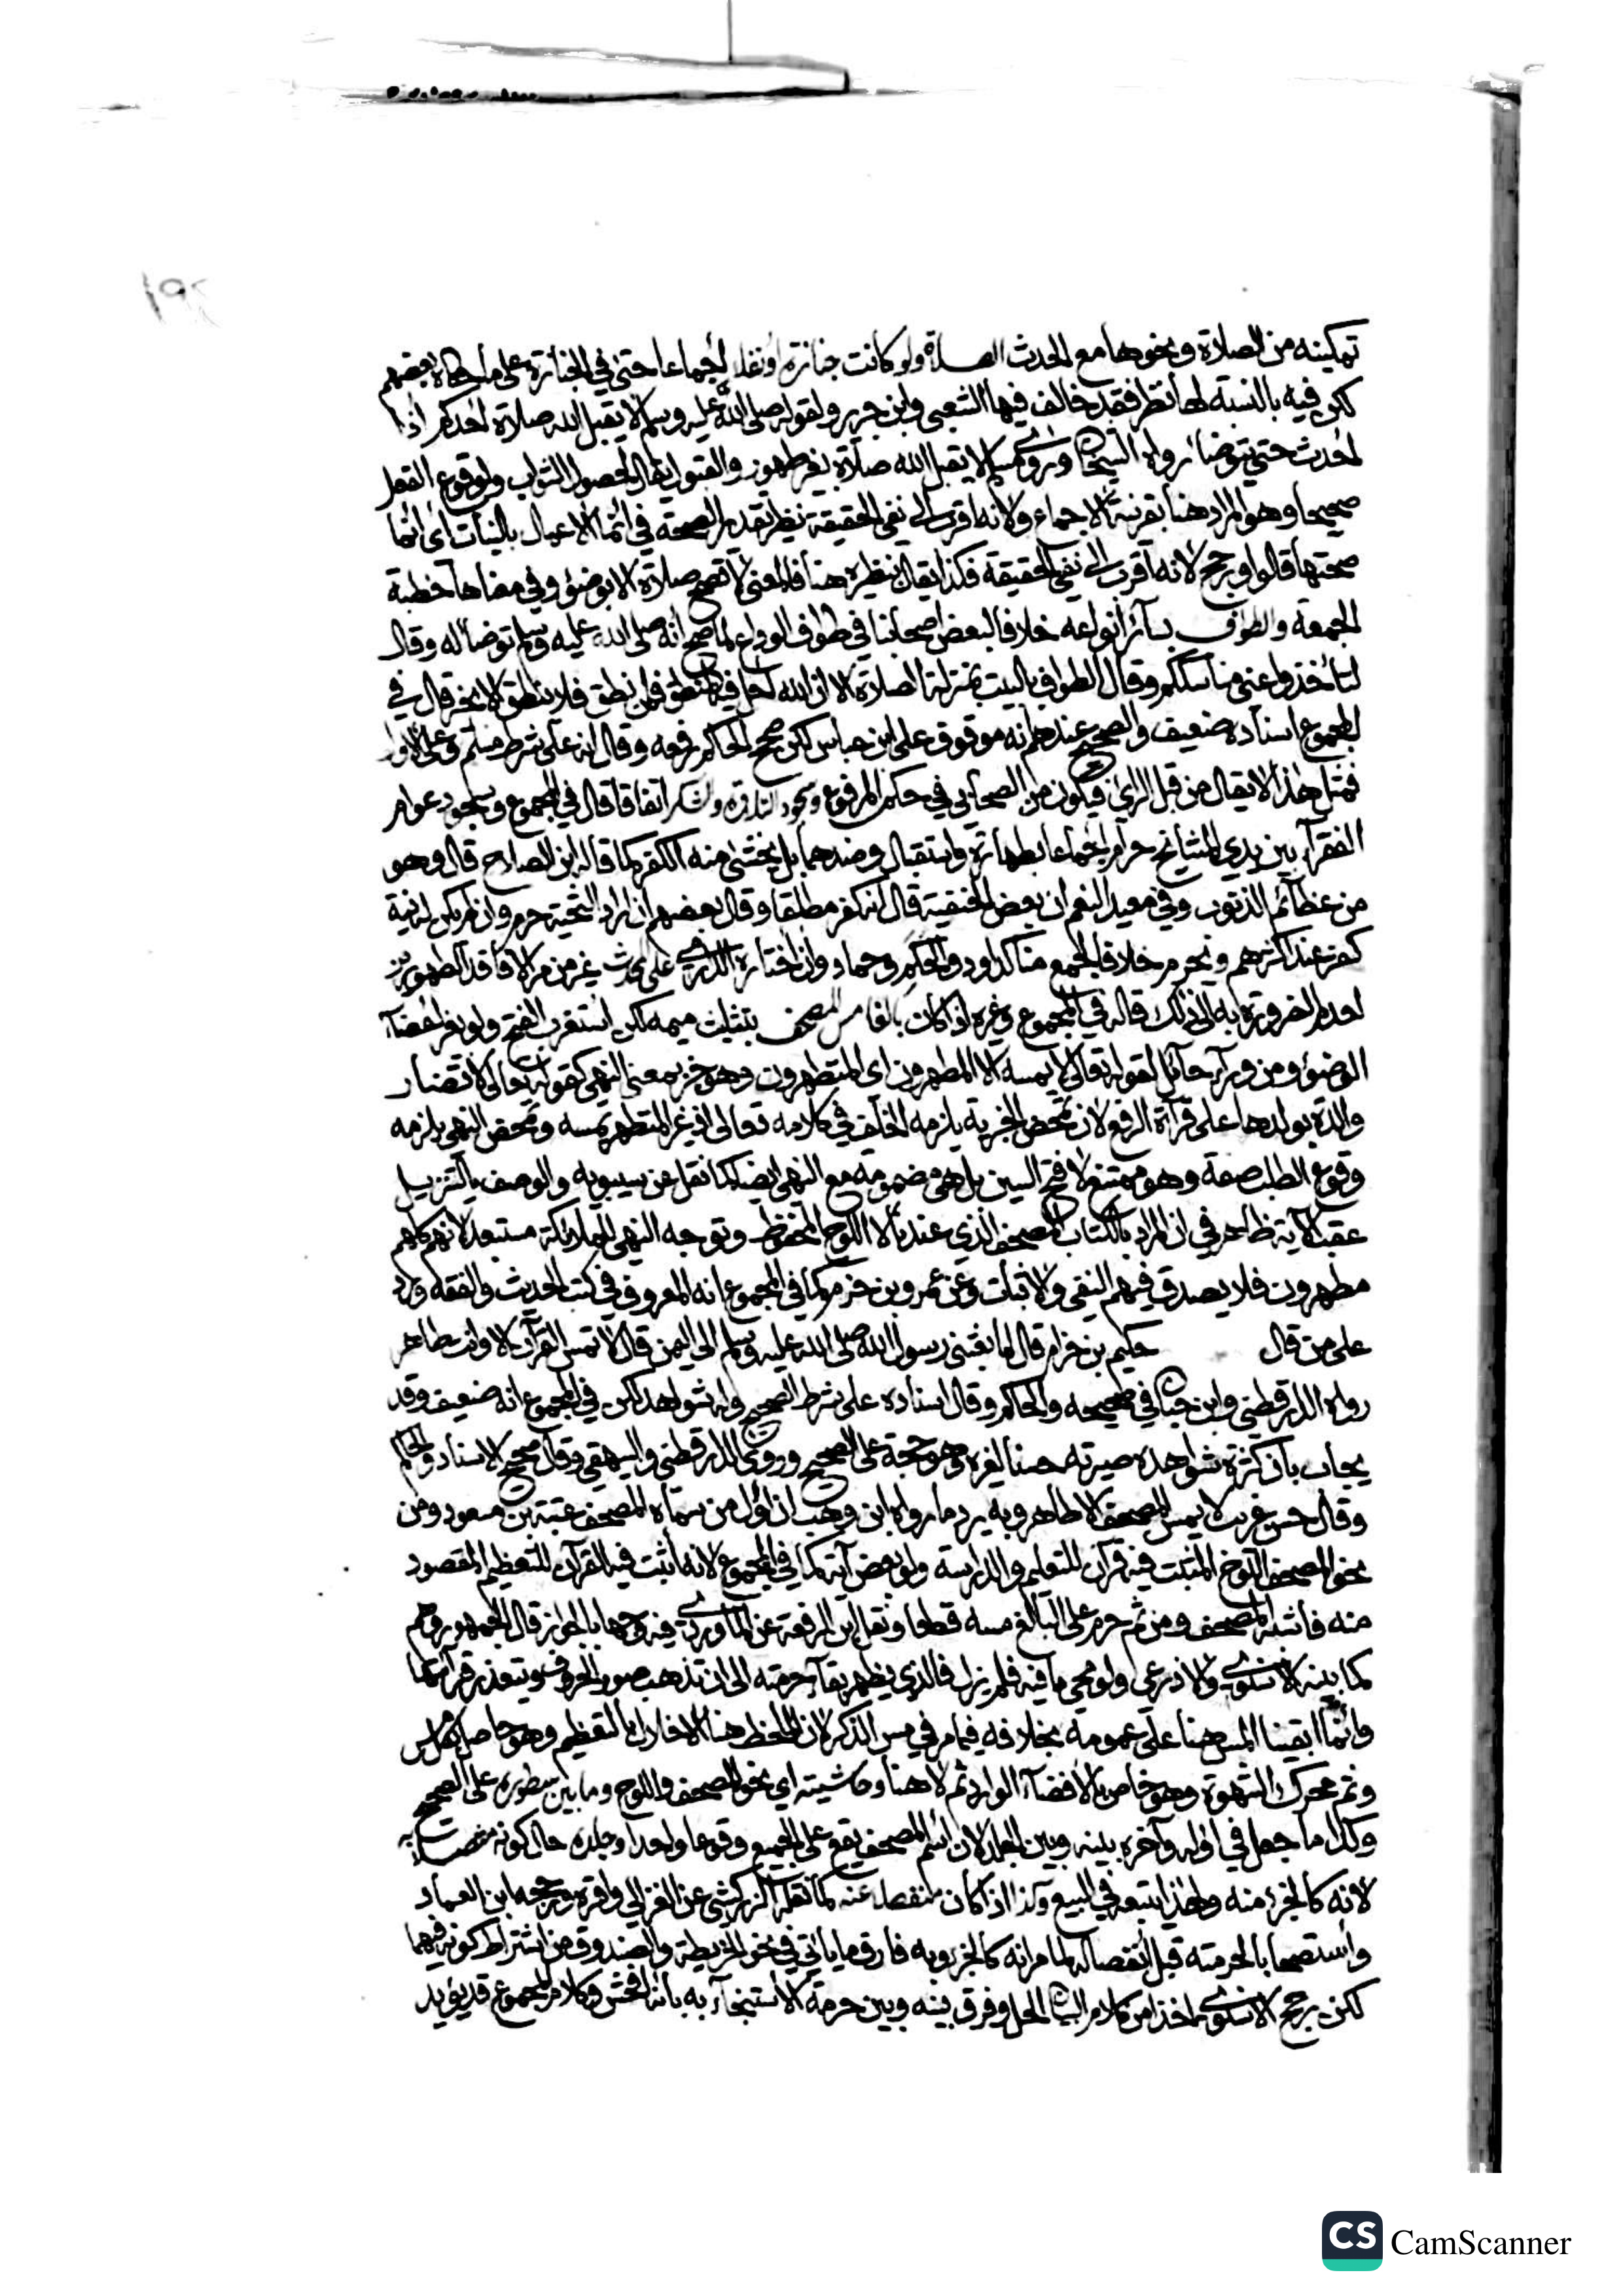 ١٩٢
تمكينه من الصلاة ونحوها مع الحدث الصلاة ولو كانت جنازة أو نفلا إجماعا حتى في الجنازة على ما حكاه بعضهم
لكن فيه بالنسبة لها نظر فقد خالف فيها الشعبي وابن جرير ولقوله صلى الله عليه وسلم لا يقبل الله صلاة أحدكم إذا
أحدث حتى يتوضأ رواه الشيخان وروى مسلم لا يقبل الله صلاة بغير طهور والقبول يقال لحصول الثواب ولوقوع الفعل
صحيحا وهو المراد هنا بقرينة الإجماع ولأنه أقرب إلى نفي الحقيقة نظير تقدير الصحة في إنما الأعمال بالنيات أي إنما
صحتها قالوا ورجح لأنه أقرب إلى نفي الحقيقة فكذا يقال بنظيره هنا فالمعنى لا تصح صلاة إلا بوضوء وفي معناها خطبة
الجمعة والطواف بسائر أنواعه خلافا لبعض أصحابنا في طواف الوداع لما صح أنه صلى الله عليه وسلم توضأ له وقال
لتأخذوا عني مناسككم وقال الطواف بالبيت بمنزلة الصلاة إلا أن الله أحل فيه المنطق فمن نطق فلا ينطق إلا بخير قال في
المجموع إسناده ضعيف والصحيح عندهم أنه موقوف على ابن عباس لكن صحح الحاكم رفعه وقال إنه على شرط مسلم وعلى الأول
فمثل هذا لا يقال من قبل الرأي فيكون من الصحابي في حكم المرفوع وسجود التلاوة والشكر اتفاقا قال في المجموع وسجود عوام
الفقراء بين يدي المشايخ حرام إجماعا بطهارة واستقبال وضدهما بل يخشى منه الكفر كما قاله ابن الصلاح قال وهو
من عظائم الذنوب وفي معيد النعم أن بعض الحنفية قال إنه كفر مطلقا وقال بعضهم إن أراد التحية حرم وإن لم يكن له نية
كفر عند أكثرهم ونحرم خلافا لجمع منا كداود والحكم وحماد وإن اختاره الدارمي على محدث غير من مر إلا فاقد الطهورين
لعدم الضرورة به إلى ذلك قاله في المجموع وغيره إذا كان بالغا مس المصحف بتثليث ميمه لكن استغرب الفتح ولو بغير أعضاء
الوضوء ومن وراء حائل لقوله تعالى لا يمسه إلا المطهرون أي المتطهرون وهو خبر بمعنى النهي كقوله تعالى لا تضار
والدة بولدها على قراءة الرفع لأن تمحض الخبرية يلزمه الخلف في كلامه تعالى إذ غير المتطهر يمسه وتمحض النهي يلزمه
وقوع الطلب صفة وهو ممتنع لا فتح السين بل هي مضمومة مع النهي أيضا كما نقل عن سيبويه والوصف بالتنزيل
عقب الآية ظاهر في أن المراد بالكتاب المصحف الذي عندنا لا اللوح المحفوظ وتوجه النهي للملائكة مستبعد لأنهم كلهم
مطهرون فلا يصدق فيهم النفي والإثبات وعن عمرو بن حزم كما في المجموع أنه المعروف في كتب الحديث والفقه ورد
على من قال حكيم بن حزام قال لما بعثني رسول الله صلى الله عليه وسلم إلى اليمن قال لا تمس القرآن إلا وأنت طاهر
رواه الدارقطني وابن حبان في صحيحه والحاكم وقال إسناده على شرط الصحيح وله شواهد لكن في المجموع أنه ضعيف وقد
يجاب بأن كثرة شواهده صيرته حسنا لغيره وهو حجة على الصحيح وروى الدارقطني والبيهقي وقال صحيح الإسناد والحاكم
وقال حسن غريب لا يمس المصحف إلا طاهر وبه يرد ما رواه ابن وهب أن أول من سماه المصحف عتبة بن مسعود ومن
نحو المصحف اللوح المثبت فيه قرآن للتعليم والدراسة ولو بعض آية كما في المجموع لأنه أثبت فيه القرآن للتعظيم المقصود
منه فأشبه المصحف ومن ثم حرم على البالغ مسه قطعا ونقل ابن الرفعة عن الماوردي فيه وجها بالجواز قال الجمهور وهم
كما بينه الإسنوي والأذرعي ولو محي ما فيه فلم يزل فالذي يظهر بقاء حرمته إلى أن تذهب صور الحروف ويتعذر قراءتها
وإنما أبقينا المس هنا على عمومه بخلافه فيما مر في مس الذكر لأن الملحظ هنا الإخلال بالتعظيم وهو حاصل بكل مس
وثم محرك الشهوة وهو خاص بالإفضاء الوارد ثم لا هنا وحاشيته أي نحو المصحف واللوح وما بين سطوره على الصحيح
وكذا ما جعل في أوله وآخره بينه وبين الجلد لأن اسم المصحف يقع على الجميع وقوعا واحدا وجلده حال كونه متصلا به
لأنه كالجزء منه ولهذا يتبعه في البيع وكذا إذا كان منفصلا عنه كما نقله الزركشي عن الغزالي وأقره ورجحه ابن العماد
واستصحابا لحرمته قبل انفصاله لما مر أنه كالجزء وبه فارق ما يأتي في نحو الخريطة والصندوق من اشتراط كونه فيهما
لكن رجح الإسنوي أخذا من كلام البيان الحل وفرق بينه وبين حرمة الاستنجاء به بأنه أفحش وكلام المجموع قد يؤيد
CS CamScanner